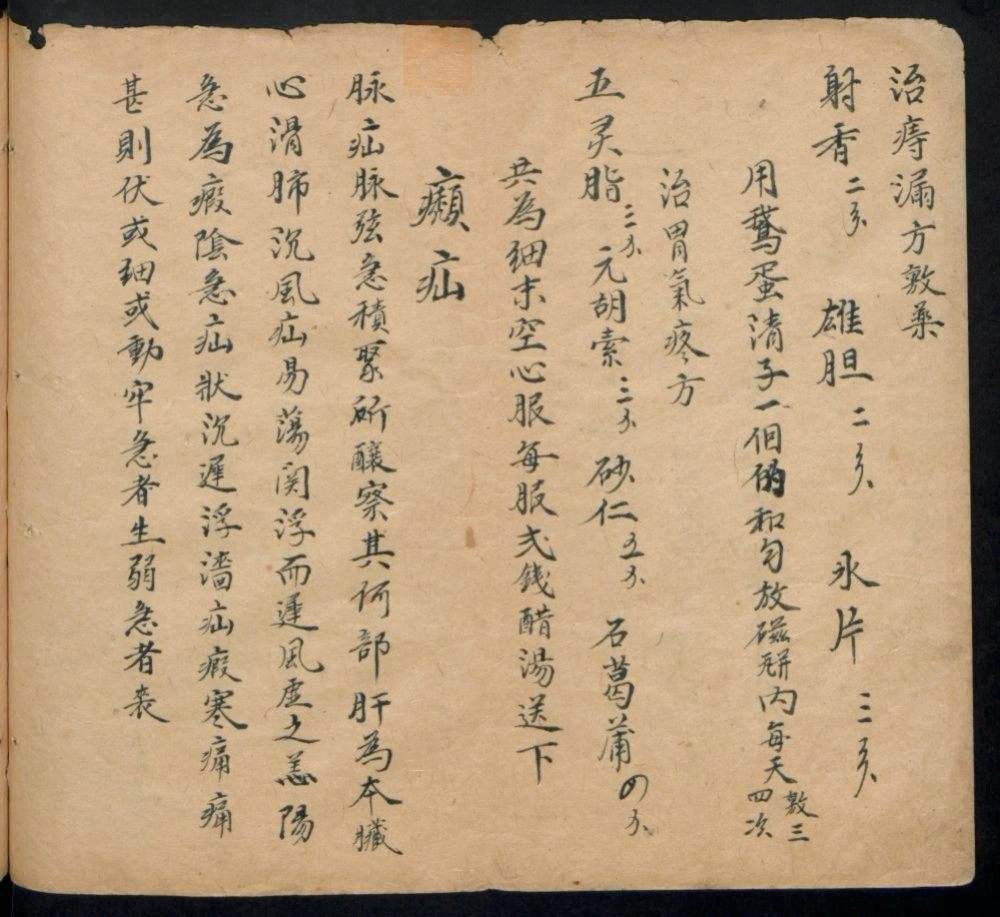 治痔漏方敷藥
射香二分 雄胆二分 氷片三分
用鵝蛋清子一個的和匀放磁瓶内每天敷三四次
治胃氣疼方
五灵脂三分元胡索三分砂仁五分石菖蒲四分
共為細末空心服每服弍錢醋湯送下
癩疝
脉疝脉弦急積聚所釀察其何部肝為本臟
心滑肺沉風疝易蕩関浮而遲風虚之恙陽
急為瘕陰急疝狀沉遲浮濇疝瘕寒痛痛
甚則伏或細或動牢急者生弱急者丧